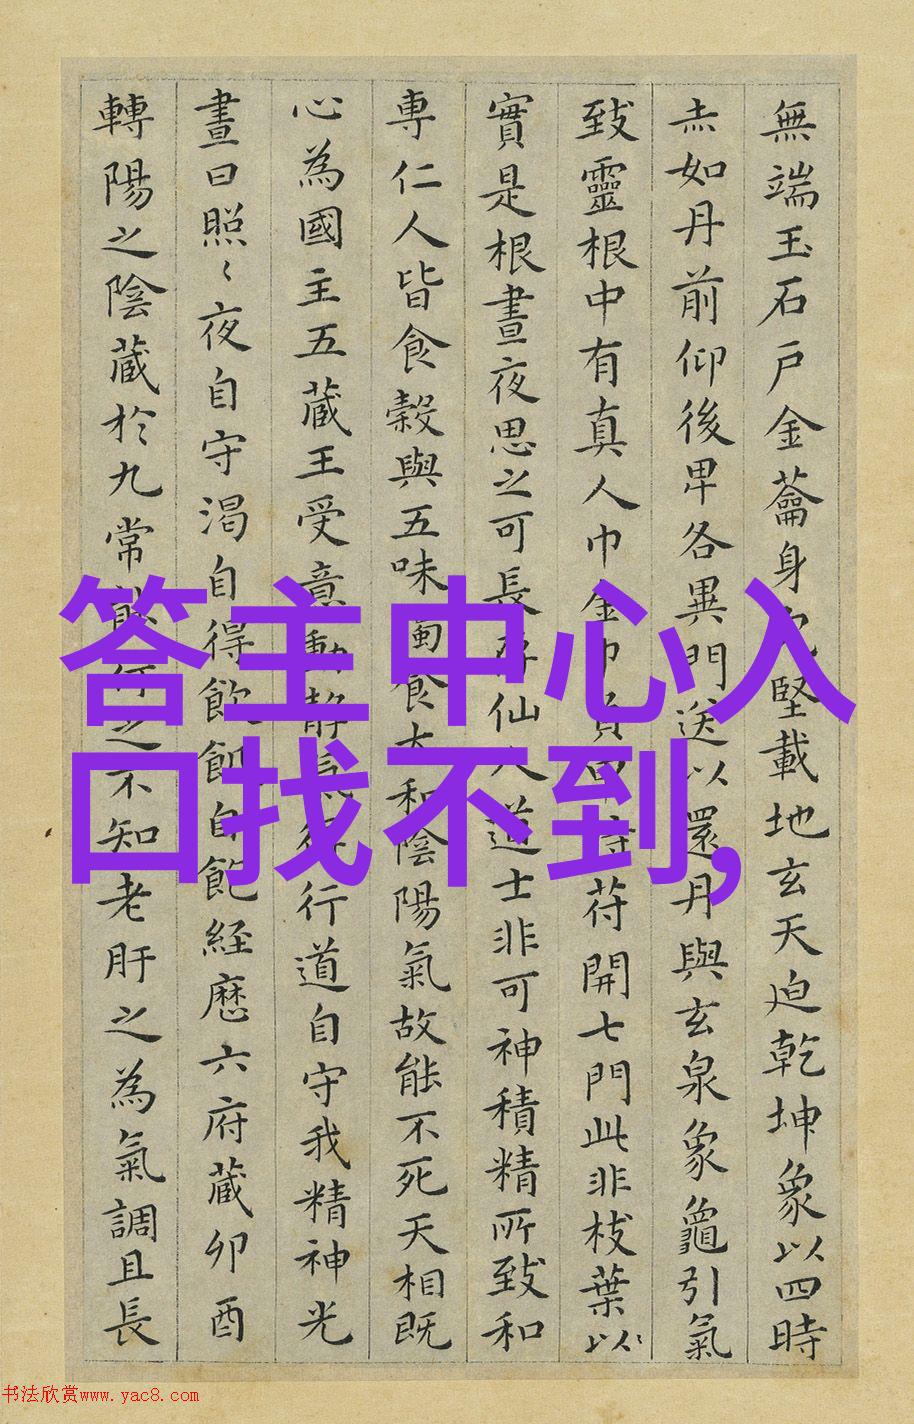 無端玉石戶金籥身完堅載地玄天迫乾坤象以四時
赤如丹前仰後卑各異門送以還丹與玄泉象龜引氣
致靈根中有真人巾金巾負甲持符開七門此非枝葉以
實是根晝夜思之可長存仙人道士非可神積精所致和
專仁人皆食穀與五味獨食太和陰陽氣故能不死天相既
心為國主五藏王受意動靜氣得行道自守我精神光
晝日照〻夜自守渴自得飲飢自飽経歷六府藏卯酉
轉陽之陰藏於九常能行之不知老肝之為氣調且長
答主中心入
口找不到,
书法欣赏www.yac8.com